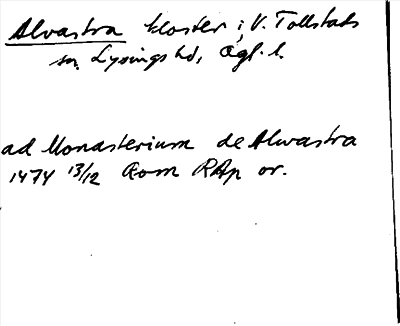 Alvastra kloster i V. Tollstads
sn, Lysings hd, Ögl. l.
ad Monasterium de Alwastra
1474 13/12 Rom RAp or.